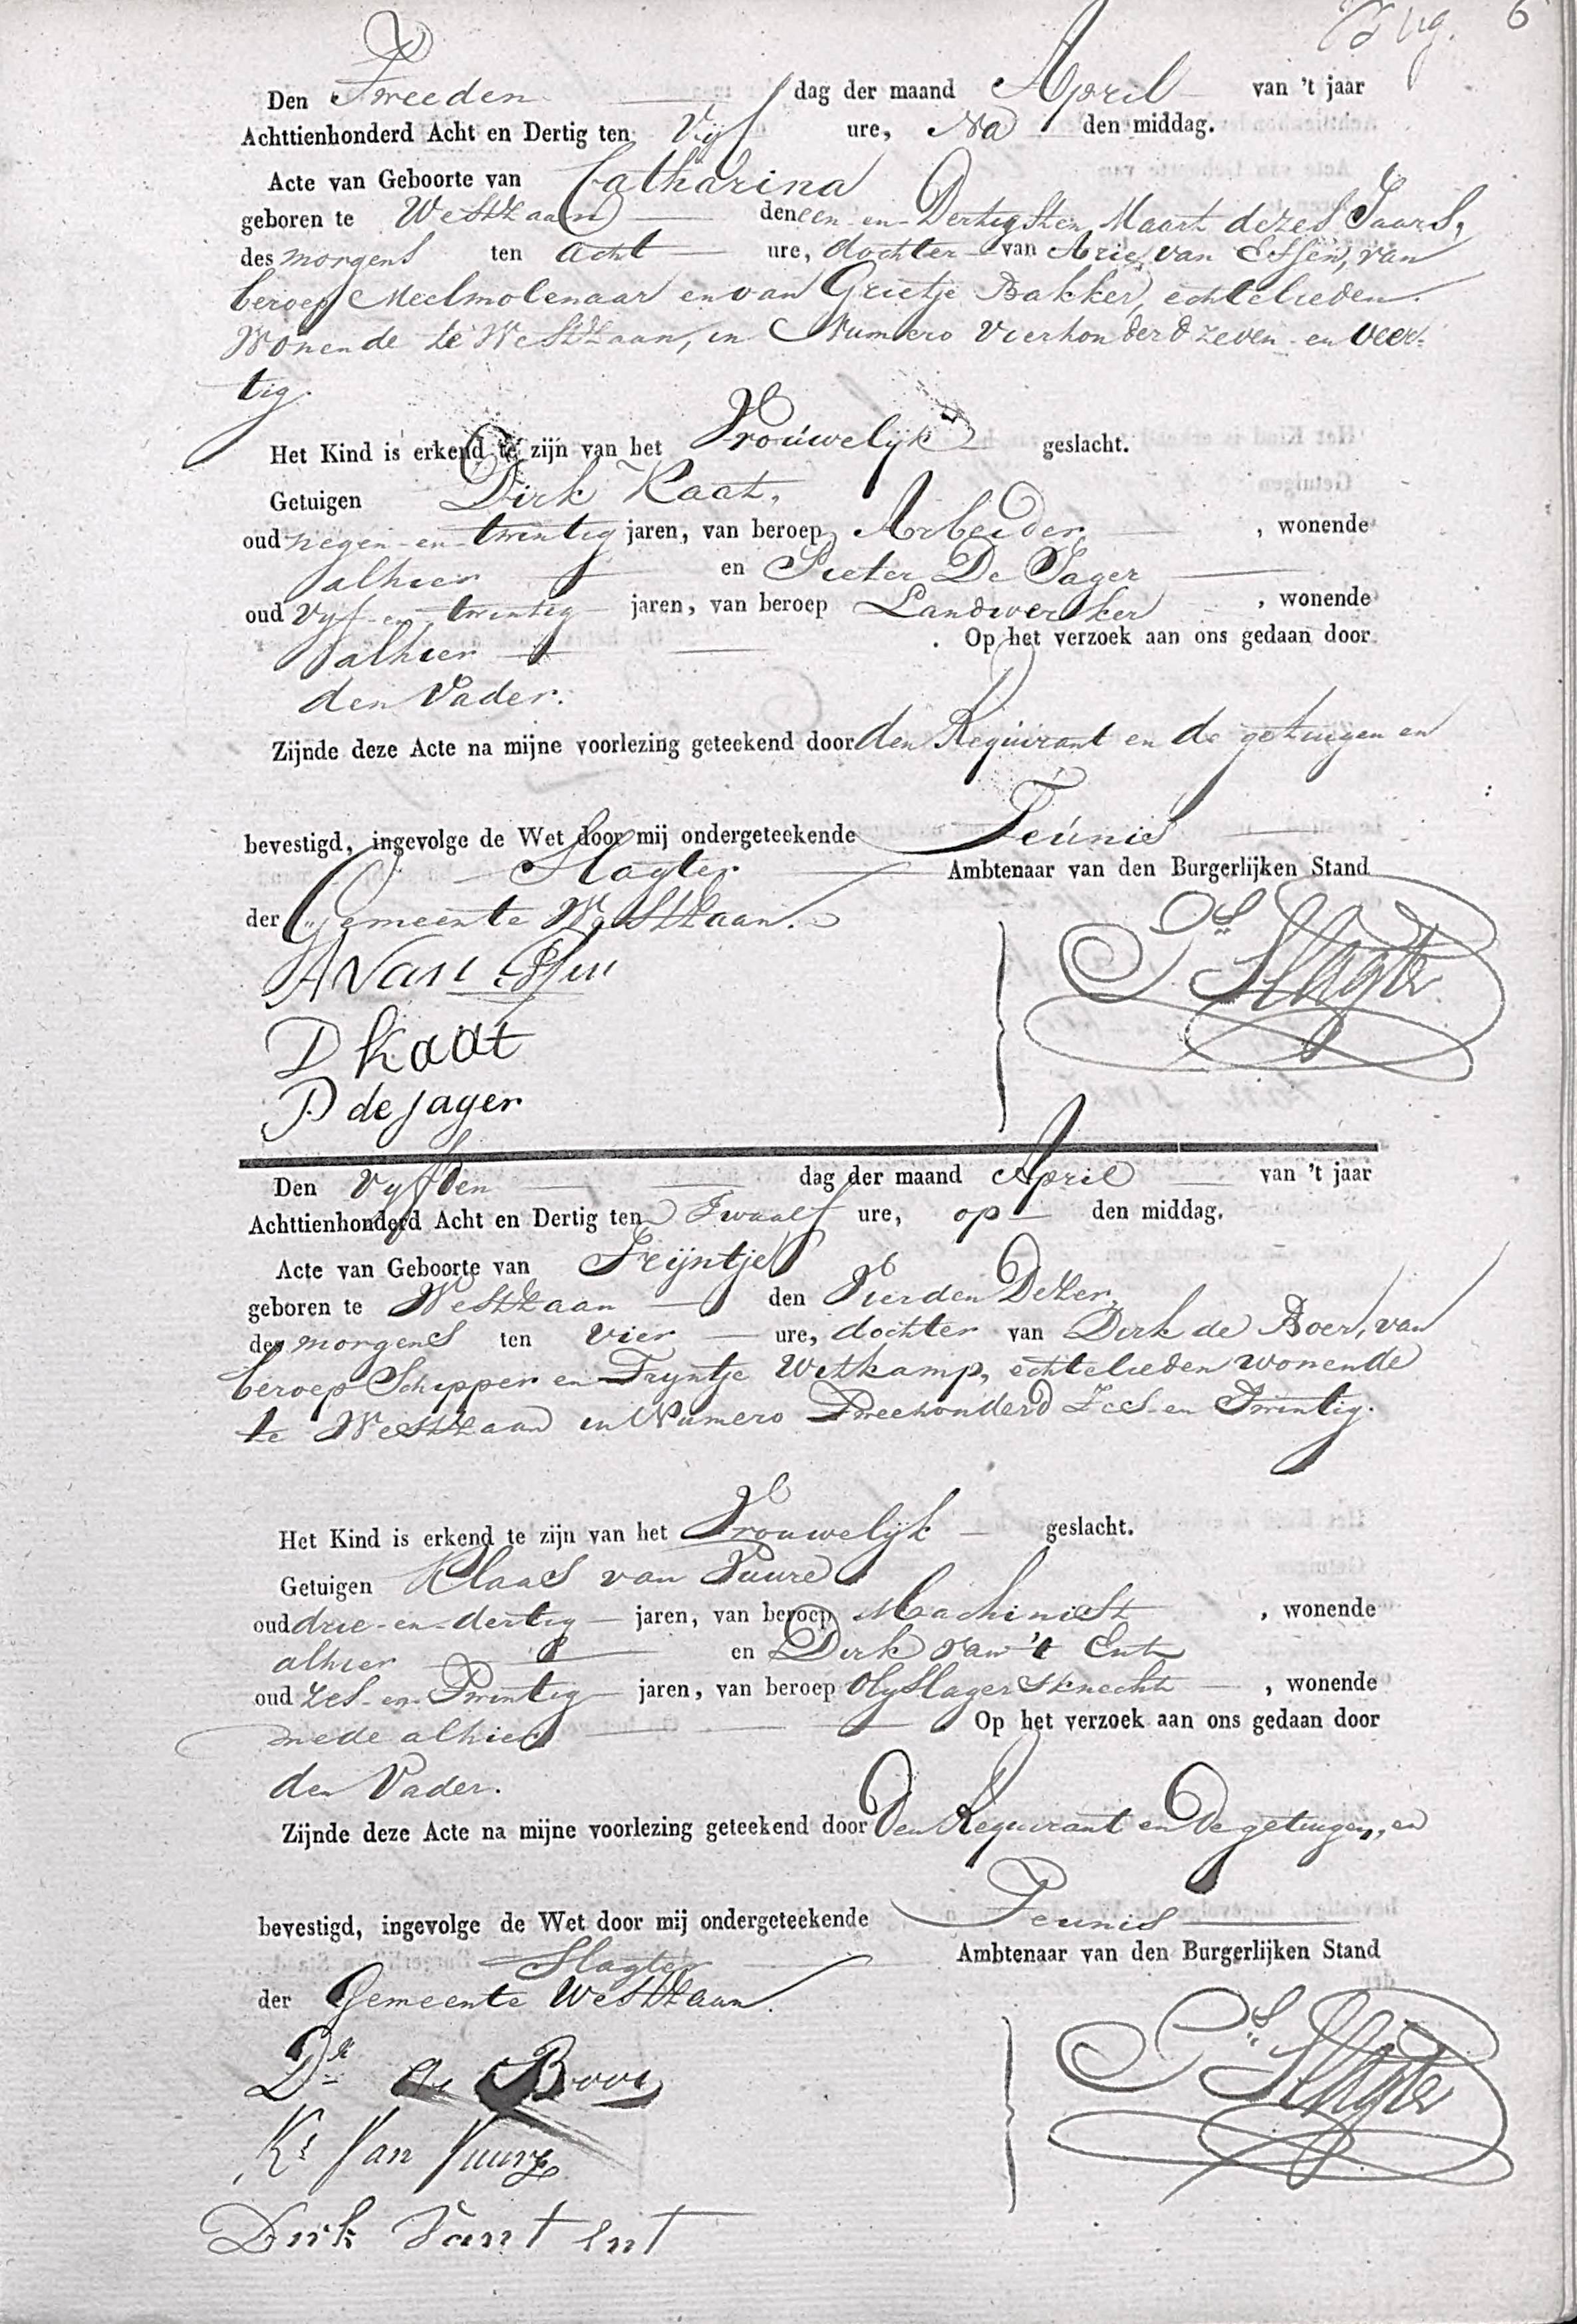 6
Den Tweeden dag der maand April van 't jaar
Achttienhonderd Acht en Dertig ten Vijf ure, Na den middag.
Acte van Geboorte van Catharina
geboren te Westzaan den een-en-Dertigsten Maart dezes Jaars,
des morgens ten acht ure, dochter van Arie van Essen, van
beroep Meelmolenaar en van Grietje Bakker, echtelieden.
Wonende te Westzaan, in Numero Vierhonderd zeven-en veer-
tig.
Het Kind is erkend te zijn van het Vrouwelijk geslacht.
Getuigen Dirk Kaat,
oud negen-en-twintig jaren, van beroep Arbeider, , wonende
alhier en Pieter De Jager
oud vyf-en-twintig jaren, van beroep Landwerker , wonende
alhier . Op het verzoek aan ons gedaan door
den Vader.
Zijnde deze Acte na mijne voorlezing geteekend door den Requirant en de getuigen en
bevestigd, ingevolge de Wet door mij ondergeteekende Teunis
Slagter Ambtenaar van den Burgerlijken Stand
der Gemeente Westzaan.
A van Essen
Ts Slagter
D kaat
P de jager
Den Vyfden dag der maand April van 't jaar
Achttienhonderd Acht en Dertig ten Twaalf ure, op den middag.
Acte van Geboorte van Trijntje
geboren te Westzaan den Vierden Dezer,
des morgens ten vier ure, dochter van Dirk de Boer, van
beroep Schipper en Tryntje Witkamp, echtelieden wonende
te Westzaan in Numero Tweehonderd Zes-en Twintig.
Het Kind is erkend te zijn van het Vrouwelyk geslacht.
Getuigen Klaas van Vuure
oud drie-en-dertig jaren, van beroep Machinist , wonende
alhier en Dirk van 't Ent
oud zes-en-Twintig jaren, van beroep Olyslagersknecht , wonende
mede alhier Op het verzoek aan ons gedaan door
den Vader.
Zijnde deze Acte na mijne voorlezing geteekend door Den Requirant en De getuigen, en
bevestigd, ingevolge de Wet door mij ondergeteekende Teunis
Slagter Ambtenaar van den Burgerlijken Stand
der Gemeente Westzaan.
Dk de Boer
Ts Slagter
Ks Van Vuure
Dirk Van t ent